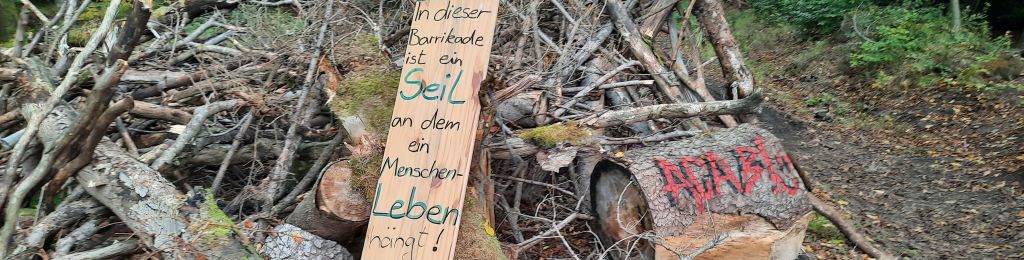 In dieser
Barrikade
ist ein
Seil
an dem
ein
Menschen-
Leben
hängt!